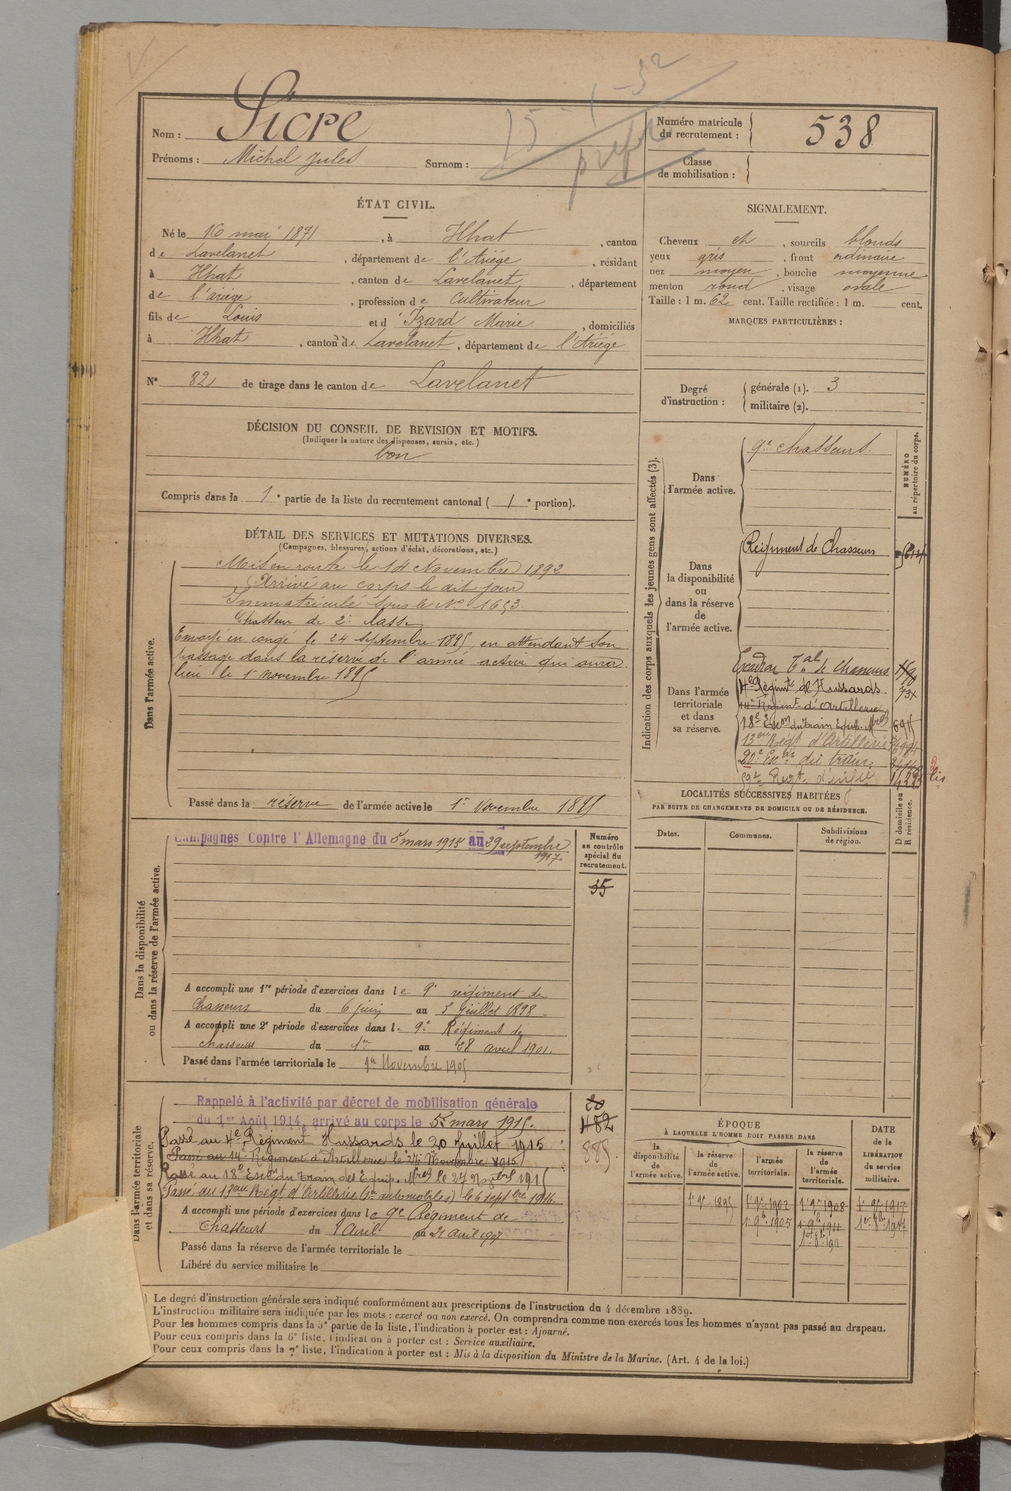 15-1-32
Nom : Sicre
Prénoms : Michel Jules Surnom :
Numéro matricule du recrutement : 538
Classe de mobilisation :
ÉTAT CIVIL.
Né le 10 mai 1871, à Ilhat, canton
de Lavelanet, département de l'Ariège, résidant
à Ilhat, canton de Lavelanet, département
de l'ariège, profession de Cultivateur
fils de Louis et d' Izard Marie, domiciliés
à Ilhat, canton de Lavelanet, département de l'Ariège
N° 82 de tirage dans le canton de Lavelanet
SIGNALEMENT.
Cheveux et, sourcils blonds
yeux gris, front ordinaire
nez moyen, bouche moyenne
menton rond, visage ovale
Taille : 1 m. 62 cent. Taille rectifiée : 1 m. cent.
MARQUES PARTICULIÈRES :
Degré d'instruction : générale (1). 3
militaire (2).
DÉCISION DU CONSEIL DE REVISION ET MOTIFS.
(Indiquer la nature des dispenses, sursis, etc.)
bon
Compris dans la 1e partie de la liste du recrutement cantonal (1e portion).
DÉTAIL DES SERVICES ET MUTATIONS DIVERSES.
(Campagnes, blessures, actions d'éclat, décorations, etc.)
Dans l'armée active.
Mis en route le 14 Novembre 1892
Arrivé au corps le dit jour
Immatriculé sous le N° 1653
Chasseur de 2e classe
Envoyé en congé le 24 septembre 1895, en attendant son
passage dans la réserve de l'armée active qui aura
lieu le 1er novembre 1895
Passé dans la réserve de l'armée active le 1er Novembre 1895
Indication des corps auxquels les jeunes gens sont affectés (3).
NUMÉRO au répertoire du corps.
Dans l'armée active.
9e chasseurs.
Dans la disponibilité ou dans la réserve de l'armée active.
Régiment de Chasseurs
Dans l'armée territoriale et dans sa réserve.
Escadron Tal de Chasseurs
4e Régimt de Hussards
14e Régimt d'Artillerie
18e Escon du train Equip. Mres
13eme Regt d'Artillerie
20e du train
LOCALITÉS SUCCESSIVES HABITÉES
PAR SUITE DE CHANGEMENTS DE DOMICILE OU DE RÉSIDENCE.
Dates. Communes. Subdivisions de région. D domicile ou R résidence.
Dans la disponibilité ou dans la réserve de l'armée active.
Campagnes Contre l'Allemagne du 5 mars 1915 au 29 septembre
1917.
Numéro au contrôle spécial du recrutement.
35
A accompli une 1re période d'exercices dans le 9e régiment de
Chasseurs du 6 juin au 3 Juillet 1898
A accompli une 2e période d'exercices dans le 9e Régiment de
chasseurs du 1er au 28 avril 1901.
Passé dans l'armée territoriale le 1er Novembre 1905
Dans l'armée territoriale et dans sa réserve.
Rappelé à l'activité par décret de mobilisation générale
du 1er Août 1914, arrivé au corps le 5 mars 1915.
482
885
Passé au 4e Régiment Hussards le 20 Juillet 1915
Passé au 14e Régiment d'Artillerie le Novembre 1915
Passé au 18e Escon du train des Equip. Mres le
Passé au 13eme Régt d'Artillerie (sr automobiles) le 6 septbre 1916
A accompli une période d'exercices dans le 9e Régiment de
Chasseurs du avril au 21 avril 1907
Passé dans la réserve de l'armée territoriale le
Libéré du service militaire le
ÉPOQUE
À LAQUELLE L'HOMME DOIT PASSER DANS
la disponibilité de l'armée active.
la réserve de l'armée active.
l'armée territoriale.
la réserve de l'armée territoriale.
DATE de la LIBÉRATION du service militaire.
1er 9bre 1895 1er 9bre 1902 1er 9bre 1908 1er 9bre 1917
1er 9bre 1905 1er 9bre 1911
) Le degré d'instruction générale sera indiqué conformément aux prescriptions de l'instruction du 4 décembre 1889.
L'instruction militaire sera indiquée par les mots : exercé ou non exercé. On comprendra comme non exercés tous les hommes n'ayant pas passé au drapeau.
Pour les hommes compris dans la 5e partie de la liste, l'indication à porter est : Ajourné.
Pour ceux compris dans la 6e liste, l'indication à porter est : Service auxiliaire.
Pour ceux compris dans la 7e liste, l'indication à porter est : Mis à la disposition du Ministre de la Marine. (Art. 4 de la loi.)